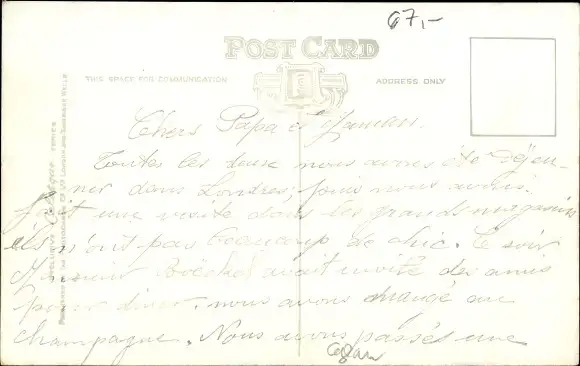 67,-
POST CARD
THIS SPACE FOR COMMUNICATION
ADDRESS ONLY
Chers Papa et Maman.
Toutes les deux nous avons été Déjeu-
ner dans Londres, puis nous avons
fait une visite dans les grands magasins
ils n'ont pas beaucoup de chic. Ce soir
Monsieur avait invité des amis
pour diner, nous avons mangé au
champagne. Nous avons passés une